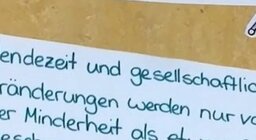 endezeit und gesellschaftlic
ränderungen werden nur vo
er Minderheit als